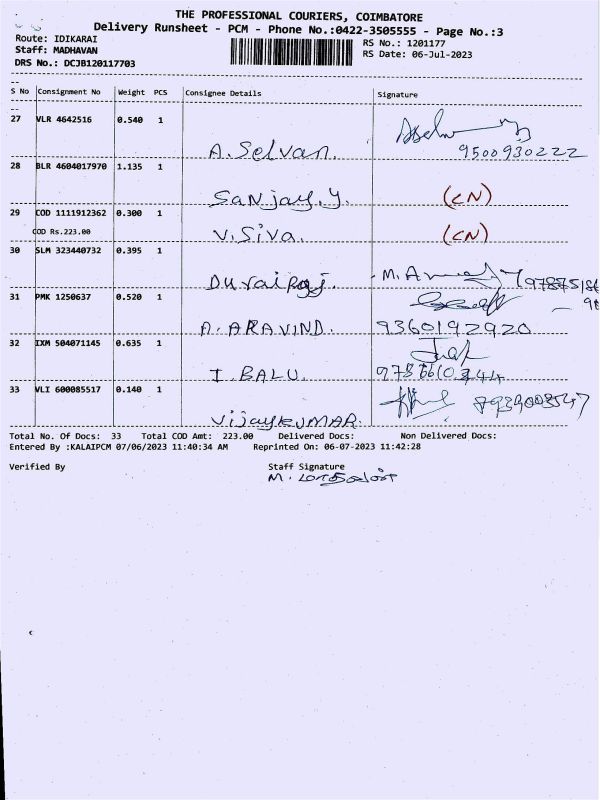 THE PROFESSIONAL COURIERS, COIMBATORE
Delivery Runsheet - PCM - Phone No.:0422-3505555 - Page No.:3
Route: IDIKARAI
Staff: MADHAVAN
DRS No.: DCJB120117703
RS No.: 1201177
RS Date: 06-Jul-2023
S No Consignment No Weight PCS Consignee Details Signature
27 VLR 4642516 0.540 1
A. Selvan. 9500930222
28 BLR 4604017970 1.135 1
Sanjay.y. (CN)
29 COD 1111912362 0.300 1
COD Rs.223.00 V.Siva. (CN)
30 SLM 323440732 0.395 1
Durairaj.
31 PMK 1250637 0.520 1
A. ARAVIND. 9360192920
32 IXM 504071145 0.635 1
I. BALU.
33 VLI 600085517 0.140 1
Vijaykumar.
Total No. Of Docs: 33 Total COD Amt: 223.00 Delivered Docs: Non Delivered Docs:
Entered By :KALAIPCM 07/06/2023 11:40:34 AM Reprinted On: 06-07-2023 11:42:28
Verified By Staff Signature
M. மாதவன்